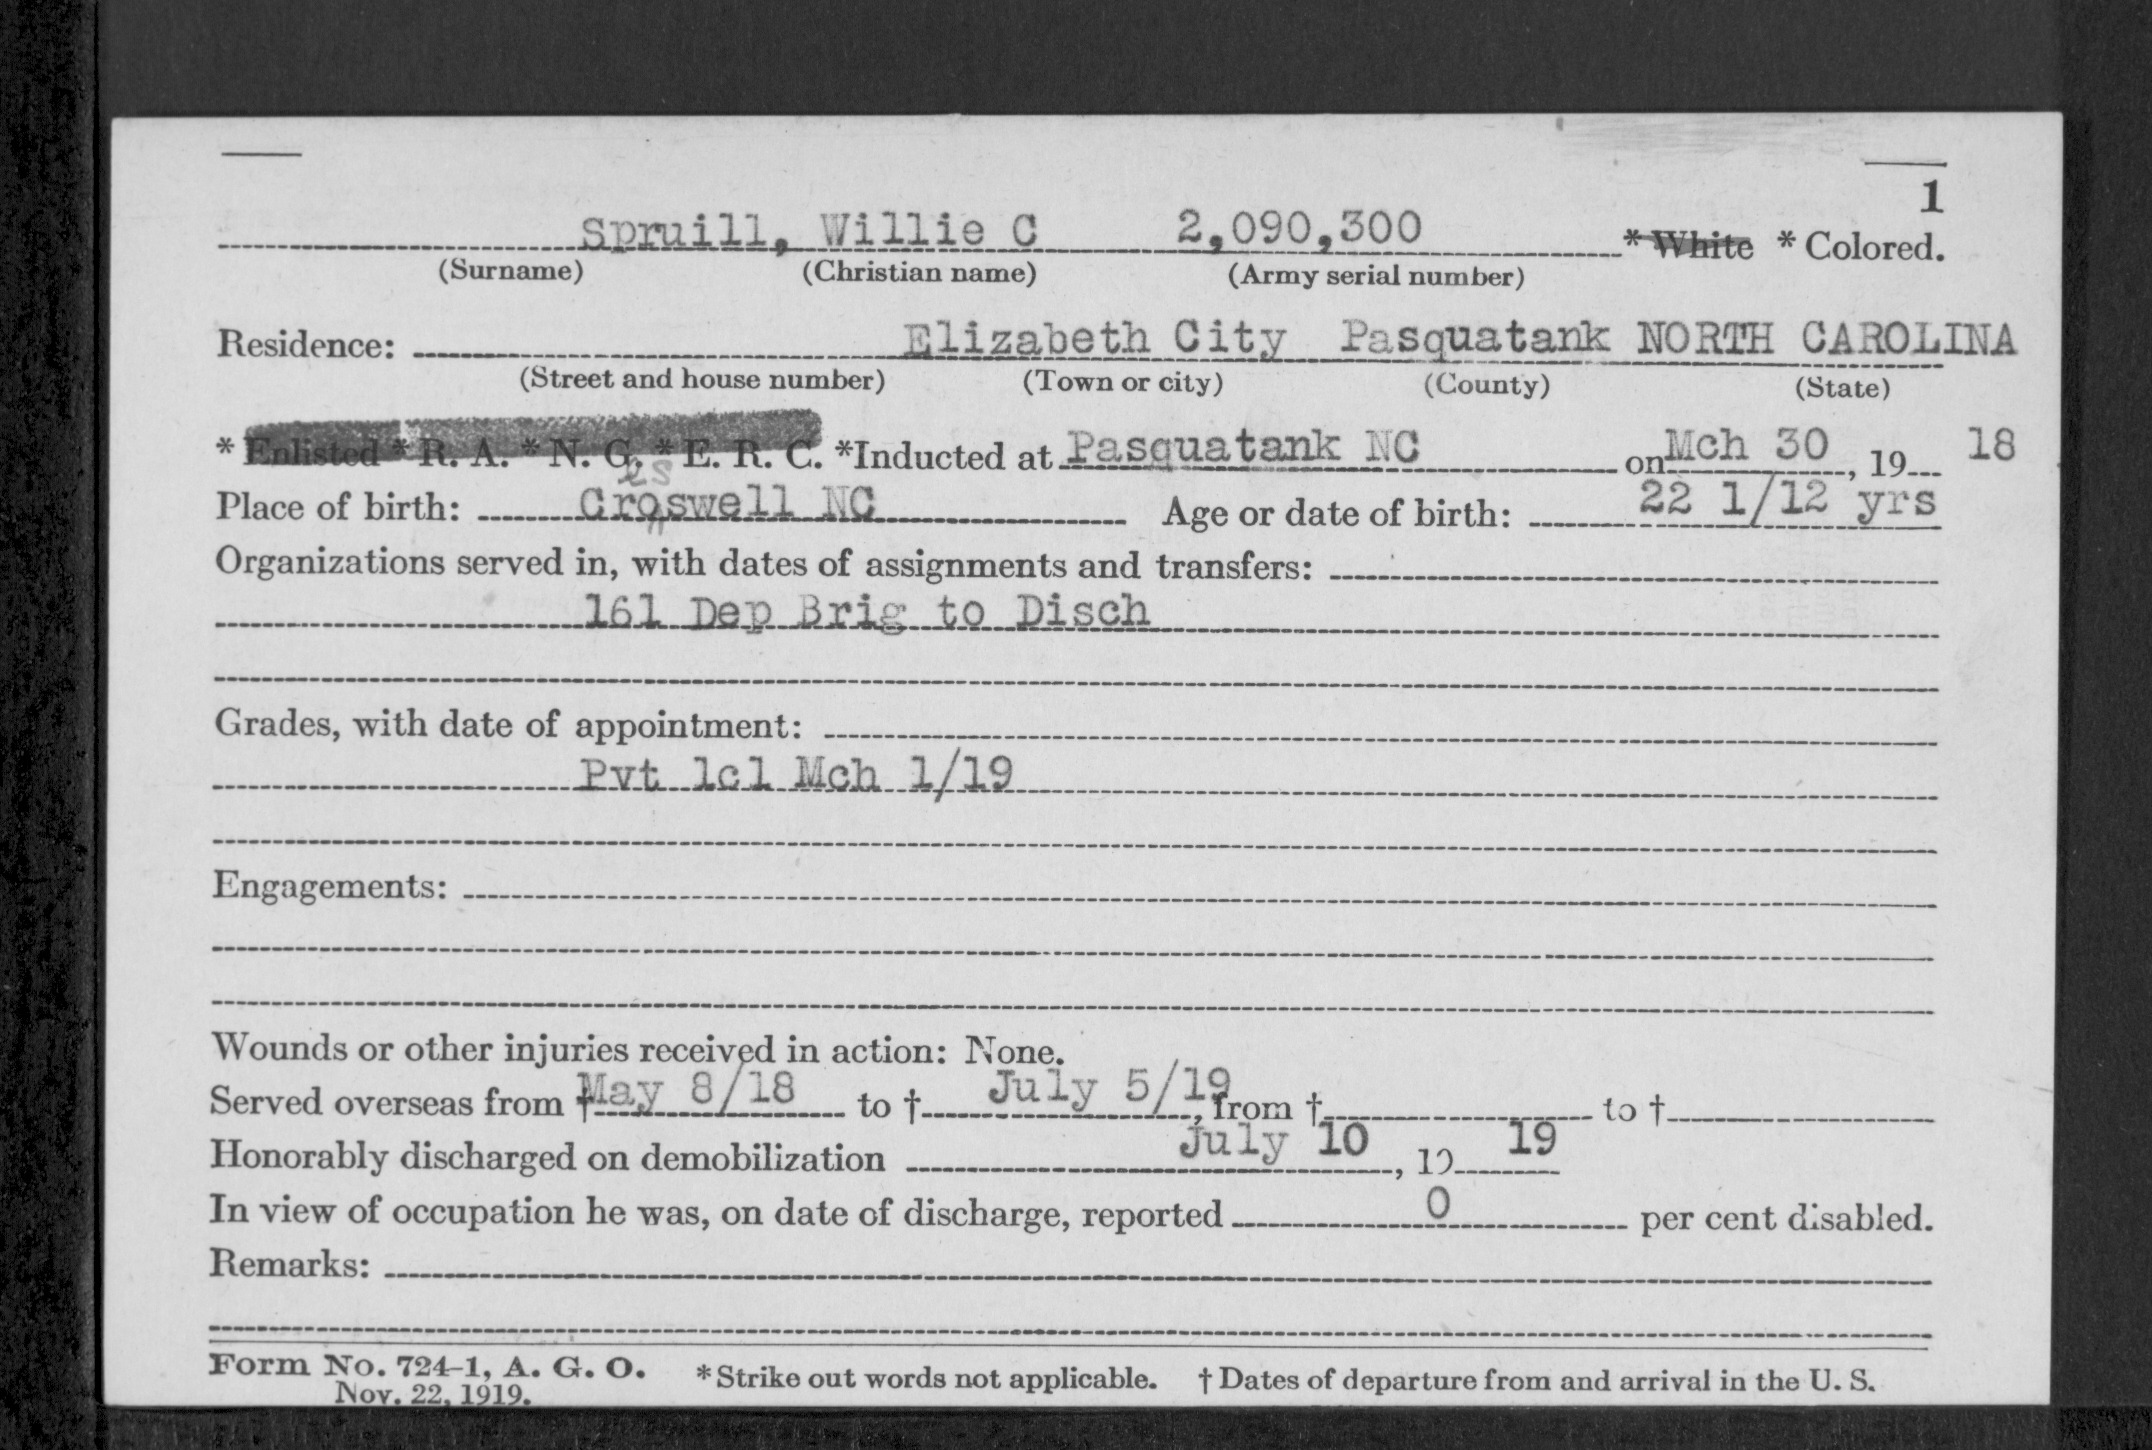 1
Spruill, Willie C 2,090,300 * White * Colored.
(Surname) (Christian name) (Army serial number)
Residence: Elizabeth City Pasquatank NORTH CAROLINA
(Street and house number) (Town or city) (County) (State)
* Enlisted * R. A. * N. G. * E. R. C. *Inducted at Pasquatank NC on Mch 30, 19 18
es
Place of birth: Croswell NC Age or date of birth: 22 1/12 yrs
Organizations served in, with dates of assignments and transfers:
161 Dep Brig to Disch
Grades, with date of appointment:
Pvt 1cl Mch 1/19
Engagements:
Wounds or other injuries received in action: None.
Served overseas from † May 8/18 to † July 5/19, from † to †
Honorably discharged on demobilization July 10, 19 19
In view of occupation he was, on date of discharge, reported 0 per cent disabled.
Remarks:
Form No. 724-1, A. G. O. * Strike out words not applicable. † Dates of departure from and arrival in the U. S.
Nov. 22, 1919.